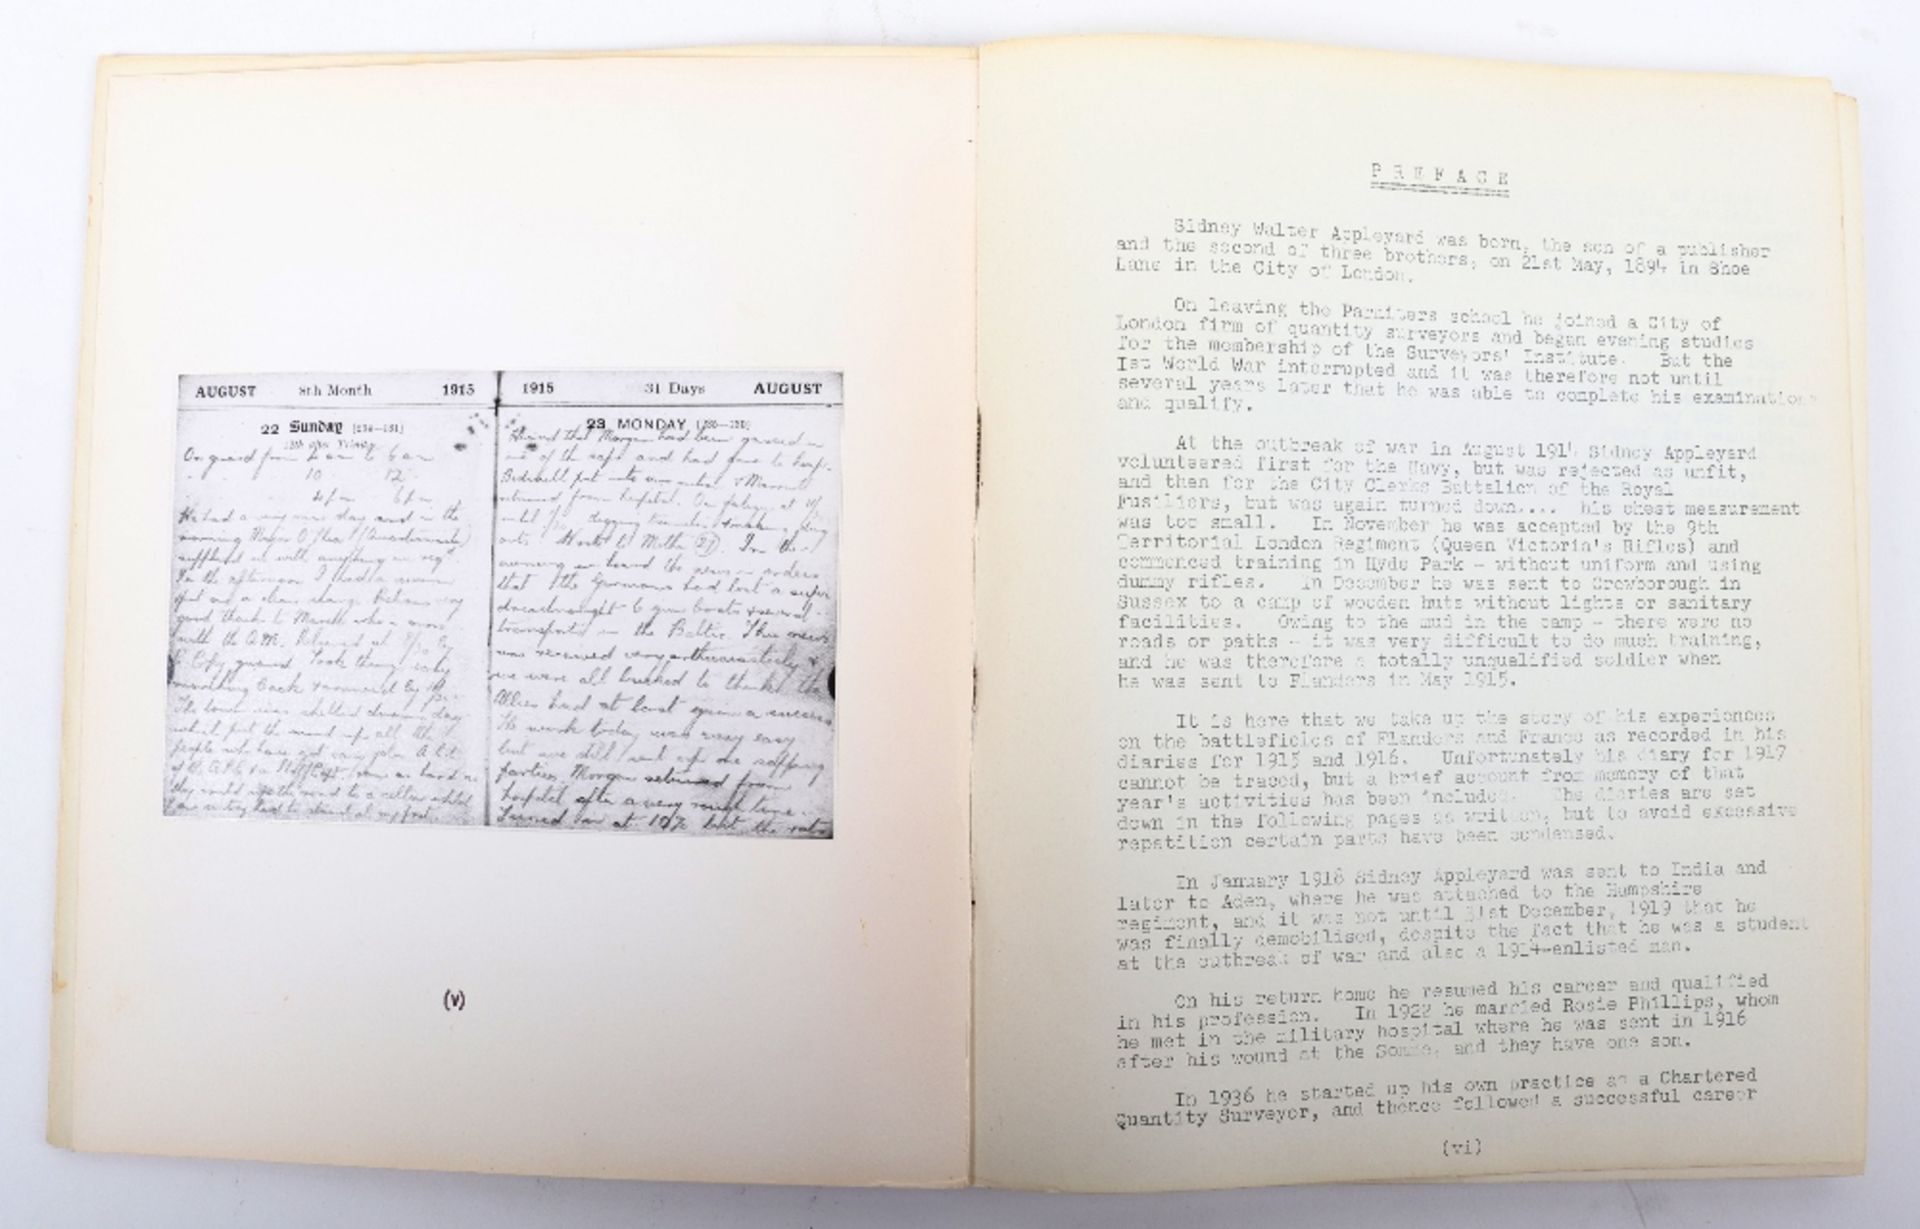 AUGUST 8th Month 1915
22 Sunday
13th after Trinity
On guard from 2 am to 6 am
10 12
4 pm 6 pm
We had a very day and in the
morning Major (Quartermaster)
supplied us with anything we
In the afternoon I had a
put on a clean change
good thanks to March who
with the Q.M. Relieved at 7/30 by
C Coy guard. Took things
marching back
The town was shelled during day
which put the wind up all the
people who have got
road to a
1915 31 Days AUGUST
23 MONDAY
Heard that Morgan had been gassed in
one of the saps and had gone to hosp.
Bidwell put into our
returned from hospital. On fatigue at
until digging trenches
Wrote to Mother (27). In the
evening we heard the news in orders
that the Germans had lost a super
dreadnought 6 gun boats & several
transports in the Baltic. This news
was received very enthusiastically &
we were all bucked to think the
Allies had at least a success
The work today was very easy
but we still sent up one sapping
parties. Morgan returned from
hospital after a very rough time.
Turned in at but the rats
(v)
PREFACE
Sidney Walter Appleyard was born, the son of a publisher
and the second of three brothers, on 21st May, 1894 in Shoe
Lane in the City of London.
On leaving the Parmiters school he joined a City of
London firm of quantity surveyors and began evening studies
for the membership of the Surveyors' Institute. But the
1st World War interrupted and it was therefore not until
several years later that he was able to complete his examinations
and qualify.
At the outbreak of war in August 1914 Sidney Appleyard
volunteered first for the Navy, but was rejected as unfit,
and then for the City Clerks Battalion of the Royal
Fusiliers, but was again turned down.... his chest measurement
was too small. In November he was accepted by the 9th
Territorial London Regiment (Queen Victoria's Rifles) and
commenced training in Hyde Park - without uniform and using
dummy rifles. In December he was sent to Crowborough in
Sussex to a camp of wooden huts without lights or sanitary
facilities. Owing to the mud in the camp - there were no
roads or paths - it was very difficult to do much training,
and he was therefore a totally unqualified soldier when
he was sent to Flanders in May 1915.
It is here that we take up the story of his experiences
on the battlefields of Flanders and France as recorded in his
diaries for 1915 and 1916. Unfortunately his diary for 1917
cannot be traced, but a brief account from memory of that
year's activities has been included. The diaries are set
down in the following pages as written, but to avoid excessive
repetition certain parts have been condensed.
In January 1918 Sidney Appleyard was sent to India and
later to Aden, where he was attached to the Hampshire
regiment, and it was not until 31st December, 1919 that he
was finally demobilised, despite the fact that he was a student
at the outbreak of war and also a 1914-enlisted man.
On his return home he resumed his career and qualified
in his profession. In 1922 he married Rosie Phillips, whom
he met in the military hospital where he was sent in 1916
after his wound at the Somme, and they have one son.
In 1936 he started up his own practice as a Chartered
Quantity Surveyor, and thence followed a successful career
(vi)